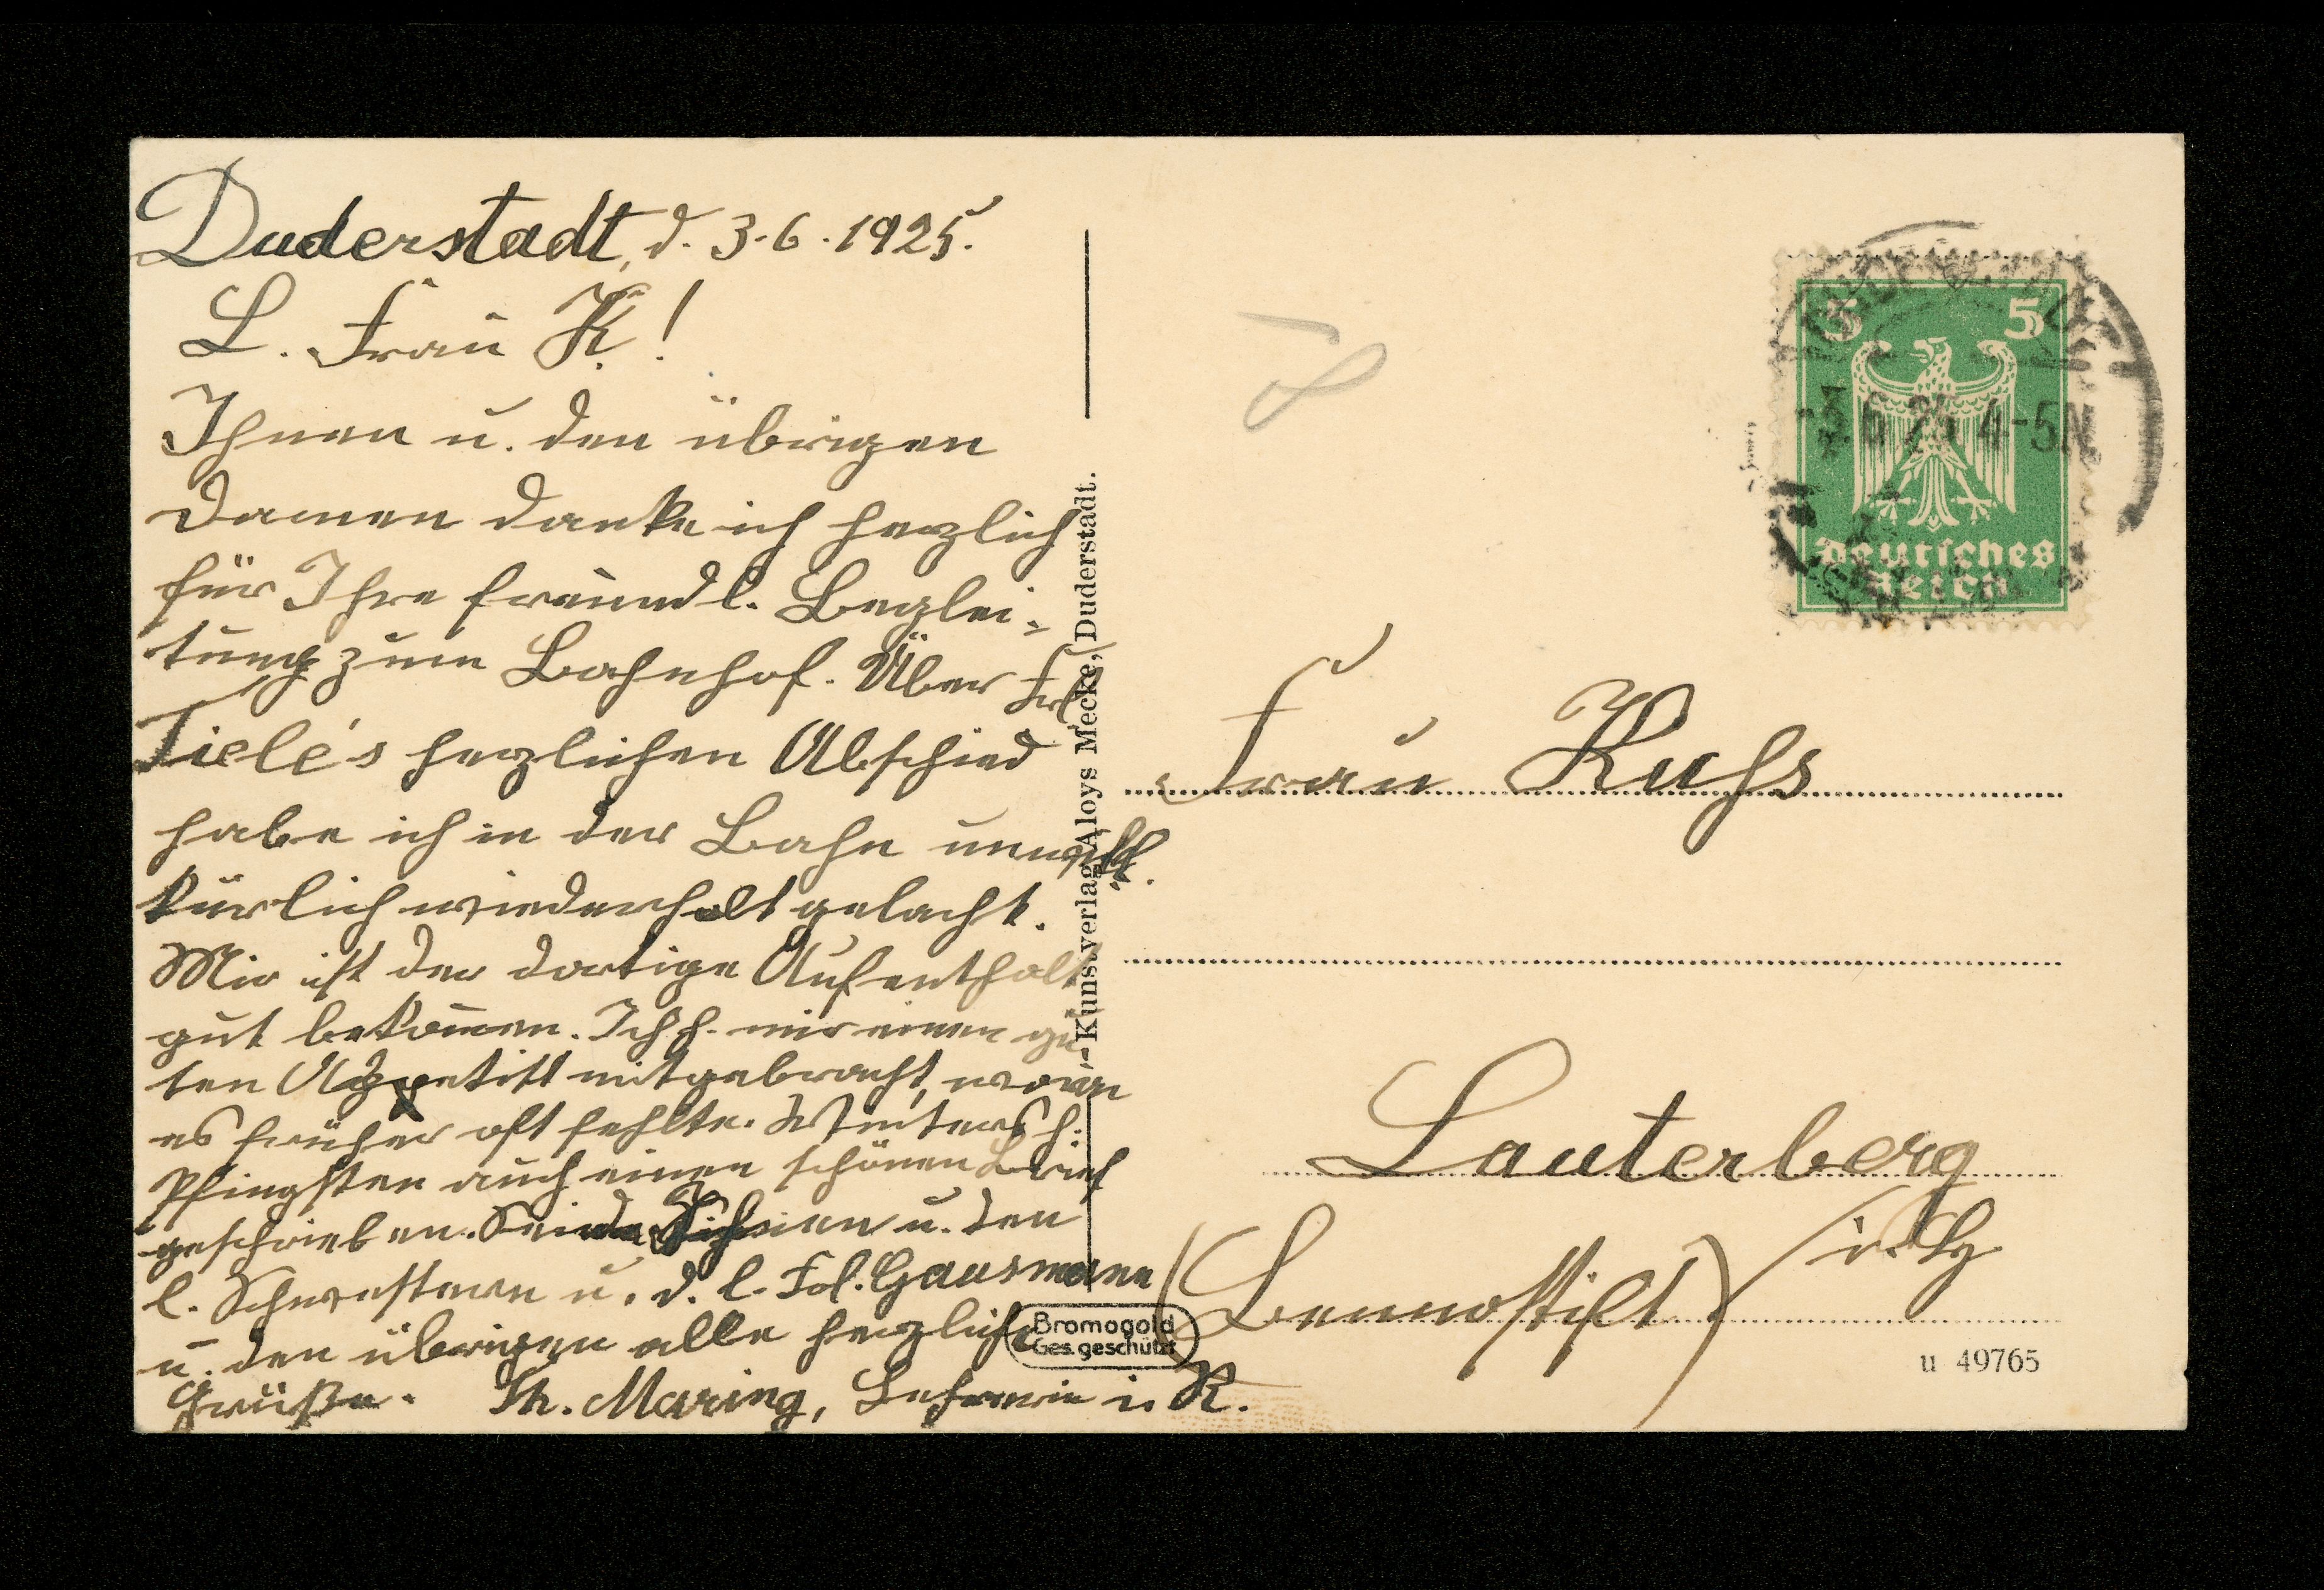 Duderstadt, d. 3.6.1925.
L. Frau K!
Ihnen u. den übrigen
Damen danke ich herzlich
für Ihre freundl. Beglei-
tung zum Bahnhof. Über Frl.
Tiele's herzlichen Abschied
habe ich in der Bahn unwill-
kürlich wiederholt gelacht.
Mir ist der dortige Aufenthalt
gut bekommen. Ich h. mir einen gu-
ten Appetitt mitgebracht, woran
es früher oft fehlte. h.
Pfingsten auch einen schönen Brief
geschrieben. Ihnen u. den
l. Schwestern u. d. l. Frl. Gausmann
u. den übrigen alle herzliche
Grüße. Th. Maring, Lehrerin i. R.
Kunstverlag Aloys Mecke, Duderstadt.
Bromogold
Ges. geschützt
5 5
3.6.25 4-5N
Deutsches
Reich
Frau Kuhs
Lauterberg
i. Hz
(Bennostift)
u 49765